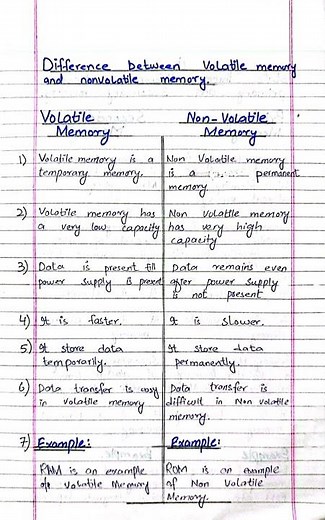 Difference between Volatile memory
and nonvolatile memory.
Volatile
Memory
Non-Volatile
Memory
1) Volatile memory is a
temporary memory.
Non Volatile memory
is a permanent
memory
2) Volatile memory has
a very low capacity
Non Volatile memory
has very high
capacity
3) Data is present till
power supply is present
Data remains even
after power supply
is not present
4) It is faster.
It is slower.
5) It store data
temporarily.
It store data
permanently.
6) Data transfer is easy
in volatile memory
Data transfer is
difficult in Non volatile
memory.
7) Example:
RAM is an example
of Volatile Memory
Example:
ROM is an example
of Non Volatile
Memory.